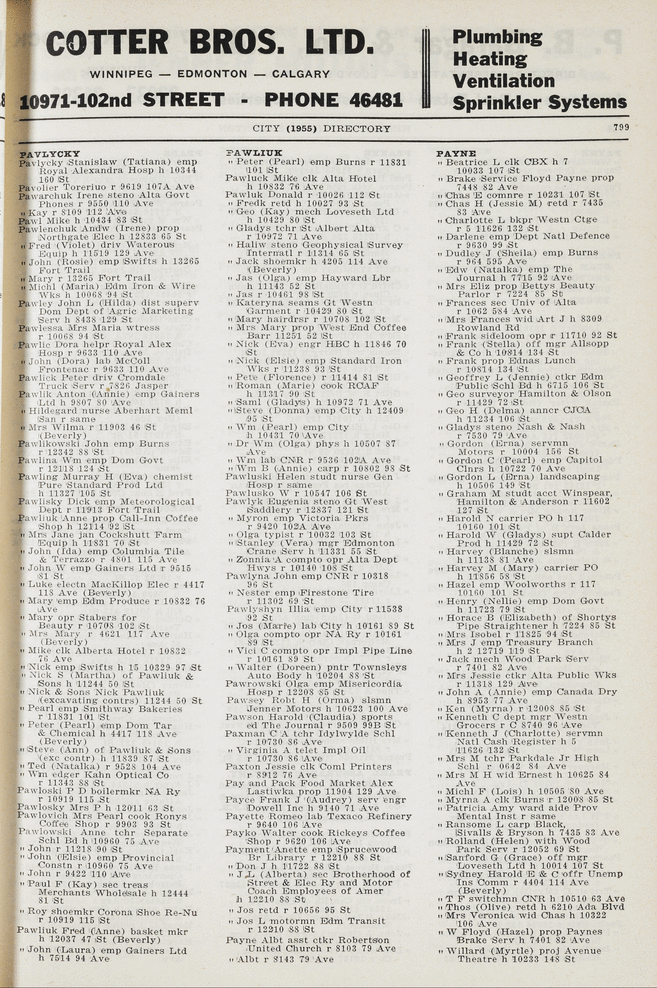 COTTER BROS. LTD.
WINNIPEG — EDMONTON — CALGARY
10971-102nd STREET - PHONE 46481
Plumbing
Heating
Ventilation
Sprinkler Systems
CITY (1955) DIRECTORY
799
PAVLYCKY
Pavlycky Stanislaw (Tatiana) emp
Royal Alexandra Hosp h 10344
160 St
Pavolier Toreriuo r 9619 107A Ave
Pawarchuk Irene steno Alta Govt
Phones r 9550 110 Ave
" Kay r 8109 112 Ave
Pawl Mike h 10434 83 St
Pawlenchuk Andw (Irene) prop
Northgate Elec h 12833 65 St
" Fred (Violet) driv Waterous
Equip h 11519 129 Ave
" John (Rosie) emp Swifts h 13265
Fort Trail
" Mary r 13265 Fort Trail
" Michl (Maria) Edm Iron & Wire
Wks h 10068 94 St
Pawley John L (Hilda) dist superv
Dom Dept of Agric Marketing
Serv h 8438 129 St
Pawlessa Mrs Maria wtress
r 10068 94 St
Pawlic Dora helpr Royal Alex
Hosp r 9633 110 Ave
" John (Dora) lab McColl
Frontenac r 9633 110 Ave
Pawlick Peter driv Cromdale
Truck Serv r 7826 Jasper
Pawlik Anton (Annie) emp Gainers
Ltd h 9807 89 Ave
" Hildegard nurse Aberhart Meml
San r same
" Mrs Wilma r 11903 46 St
(Beverly)
Pawlikowski John emp Burns
r 12342 88 St
Pawlina Wm emp Dom Govt
r 12118 124 St
Pawling Murray H (Eva) chemist
Pure Standard Prod Ltd
h 11327 105 St
Pawlisky Dick emp Meteorological
Dept r 11913 Fort Trail
Pawliuk Anne prop Call-Inn Coffee
Shop h 12114 92 St
" Mrs Jane jan Cockshutt Farm
Equip h 11831 70 St
" John (Ida) emp Columbia Tile
& Terrazzo r 4801 115 Ave
" John W emp Gainers Ltd r 9515
81 St
" Luke electn MacKillop Elec r 4417
118 Ave (Beverly)
" Mary emp Edm Produce r 10832 76
Ave
" Mary opr Stabers for
Beauty r 10708 102 St
" Mrs Mary r 4621 117 Ave
(Beverly)
" Mike clk Alberta Hotel r 10832
76 Ave
" Nick emp Swifts h 15 10329 97 St
" Nick S (Martha) of Pawliuk &
Sons h 11244 50 St
" Nick & Sons Nick Pawliuk
(excavating contrs) 11244 50 St
" Pearl emp Smithway Bakeries
r 11831 101 St
" Peter (Pearl) emp Dom Tar
& Chemical h 4417 118 Ave
(Beverly)
" Steve (Ann) of Pawliuk & Sons
(exc contr) h 11839 87 St
" Ted (Natalka) r 9528 104 Ave
" Wm edger Kahn Optical Co
r 11343 88 St
Pawloski P D boilermkr NA Ry
r 10919 115 St
Pawlosky Mrs P h 12011 63 St
Pawlovich Mrs Pearl cook Ronys
Coffee Shop r 9903 93 St
Pawlowski Anne tchr Separate
Schl Bd h 10960 75 Ave
" John r 11218 90 St
" John (Elsie) emp Provincial
Constn r 10960 75 Ave
" John r 9422 110 Ave
" Paul F (Kay) sec treas
Merchants Wholesale h 12444
81 St
" Roy shoemkr Corona Shoe Re-Nu
r 10919 115 St
Pawliuk Fred (Anne) basket mkr
h 12037 47 St (Beverly)
" John (Laura) emp Gainers Ltd
h 7514 94 Ave
PAWLIUK
" Peter (Pearl) emp Burns r 11831
101 St
Pawluck Mike clk Alta Hotel
h 10832 76 Ave
Pawluk Donald r 10026 112 St
" Fredk retd h 10027 93 St
" Geo (Kay) mech Loveseth Ltd
h 10429 80 St
" Gladys tchr St Albert Alta
r 10972 71 Ave
" Haliw steno Geophysical Survey
Internatl r 11314 65 St
" Jack shoemkr h 4205 114 Ave
(Beverly)
" Jas (Olga) emp Hayward Lbr
h 11143 52 St
" Jas r 10461 98 St
" Kateryna seams Gt Westn
Garment r 10429 80 St
" Mary hairdrsr r 10708 102 St
" Mrs Mary prop West End Coffee
Barr 11251 52 St
" Nick (Eva) engr HBC h 11846 70
St
" Nick (Elsie) emp Standard Iron
Wks r 11238 93 St
" Pete (Florence) r 11414 81 St
" Roman (Marie) cook RCAF
h 11317 90 St
" Saml (Gladys) h 10972 71 Ave
" Steve (Donna) emp City h 12409
95 St
" Wm (Pearl) emp City
h 10431 70 Ave
" Dr Wm (Olga) phys h 10507 87
Ave
" Wm lab CNR r 9536 102A Ave
" Wm B (Annie) carp r 10802 98 St
Pawluski Helen studt nurse Gen
Hosp r same
Pawlusko W r 10547 106 St
Pawlyk Eugenia steno Gt West
Saddlery r 12837 121 St
" Myron emp Victoria Pkrs
r 9420 102A Ave
" Olga typist r 10032 103 St
" Stanley (Vera) mgr Edmonton
Crane Serv h 11331 55 St
" Zonnia compto opr Alta Dept
Hwys r 10140 108 St
Pawlyna John emp CNR r 10318
96 St
" Nester emp Firestone Tire
r 11302 69 St
Pawlyshyn Illia emp City r 11538
92 St
" Jos (Marie) lab City h 10161 89 St
" Olga compto opr NA Ry r 10161
89 St
" Vici C compto opr Impl Pipe Line
r 10161 89 St
" Walter (Doreen) pntr Townsleys
Auto Body h 10204 88 St
Pawrowski Olga emp Misericordia
Hosp r 12208 85 St
Pawsey Robt H (Orma) slsmn
Jenner Motors h 10623 100 Ave
Pawson Harold (Claudia) sports
ed The Journal r 9509 99B St
Paxman C A tchr Idylwylde Schl
r 10730 86 Ave
" Virginia A telet Impl Oil
r 10730 86 Ave
Paxton Jessie clk Coml Printers
r 8912 76 Ave
Pay and Pack Food Market Alex
Lastiwka prop 11904 129 Ave
Payce Frank J (Audrey) serv engr
Dowell Inc h 9140 71 Ave
Payette Romeo lab Texaco Refinery
r 9640 106 Ave
Payko Walter cook Rickeys Coffee
Shop r 9620 106 Ave
Payment Anette emp Sprucewood
Br Library r 12210 88 St
" Don J h 11722 88 St
" J L (Alberta) sec Brotherhood of
Street & Elec Ry and Motor
Coach Employees of Amer
h 12210 88 St
" Jos retd r 10656 95 St
" Jos L motormn Edm Transit
r 12210 88 St
Payne Albt asst ctkr Robertson
United Church r 8103 79 Ave
" Albt r 8143 79 Ave
PAYNE
" Beatrice L clk CBX h 7
10033 107 St
" Brake Service Floyd Payne prop
7448 82 Ave
" Chas E comnre r 10231 107 St
" Chas H (Jessie M) retd r 7435
83 Ave
" Charlotte L bkpr Westn Ctge
r 5 11626 132 St
" Darlene emp Dept Natl Defence
r 9630 99 St
" Dudley J (Sheila) emp Burns
r 964 595 Ave
" Edw (Natalka) emp The
Journal h 7715 92 Ave
" Mrs Eliz prop Bettys Beauty
Parlor r 7224 85 St
" Frances sec Univ of Alta
r 1062 584 Ave
" Mrs Frances wid Art J h 8309
Rowland Rd
" Frank sideloom opr r 11710 92 St
" Frank (Stella) off mgr Allsopp
& Co h 10814 134 St
" Frank prop Ednas Lunch
r 10814 134 St
" Geoffrey L (Jennie) ctkr Edm
Public Schl Bd h 6715 106 St
" Geo surveyor Hamilton & Olson
r 11429 72 St
" Geo H (Delma) anncr CJCA
h 11234 106 St
" Gladys steno Nash & Nash
r 7530 79 Ave
" Gordon (Erna) servmn
Motors r 10004 156 St
" Gordon C (Pearl) emp Capitol
Clnrs h 10722 70 Ave
" Gordon L (Erna) landscaping
h 10506 149 St
" Graham M studt acct Winspear,
Hamilton & Anderson r 11602
127 St
" Harold N carrier PO h 117
10160 101 St
" Harold W (Gladys) supt Calder
Prod h 11429 72 St
" Harvey (Blanche) slsmn
h 11138 81 Ave
" Harvey M (Mary) carrier PO
h 11856 58 St
" Hazel emp Woolworths r 117
10160 101 St
" Henry (Nellie) emp Dom Govt
h 11723 79 St
" Horace B (Elizabeth) of Shortys
Pipe Straightener h 7224 85 St
" Mrs Isobel r 11825 94 St
" Mrs J emp Treasury Branch
h 2 12719 119 St
" Jack mech Wood Park Serv
r 7401 82 Ave
" Mrs Jessie ctkr Alta Public Wks
r 11318 129 Ave
" John A (Annie) emp Canada Dry
h 8953 77 Ave
" Ken (Myrna) r 12008 85 St
" Kenneth C dept mgr Westn
Grocers r C 8740 96 Ave
" Kenneth J (Charlotte) servmn
Natl Cash Register h 5
11626 132 St
" Mrs M tchr Parkdale Jr High
Schl r 0642 84 Ave
" Mrs M H wid Ernest h 10625 84
Ave
" Michl F (Lois) h 10505 80 Ave
" Myrna A clk Burns r 12008 85 St
" Patricia Amy ward aide Prov
Mental Inst r same
" Ransome L carp Black,
Sivalls & Bryson h 7435 83 Ave
" Rolland (Helen) with Wood
Park Serv r 12052 69 St
" Sanford G (Grace) off mgr
Loveseth Ltd h 10014 107 St
" Sydney Harold E & C offr Unemp
Ins Comm r 4404 114 Ave
(Beverly)
" T F switchmn CNR h 10510 63 Ave
" Thos (Olive) retd h 6210 Ada Blvd
" Mrs Veronica wid Chas h 10322
106 Ave
" W Floyd (Hazel) prop Paynes
Brake Serv h 7401 82 Ave
" Willard (Myrtle) proj Avenue
Theatre h 10233 148 St